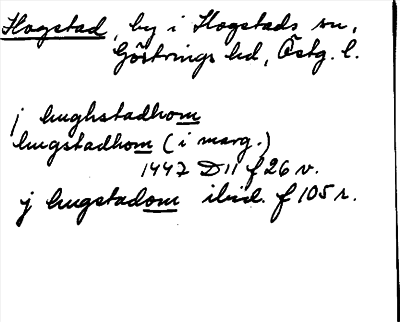 Hogstad, by i Hogstads sn,
Göstrings hd, Östg. l.
j hughstadhom
hugstadhom (i marg.)
1447 D11 f 26 v.
j hugstadom ibid. f 105 r.